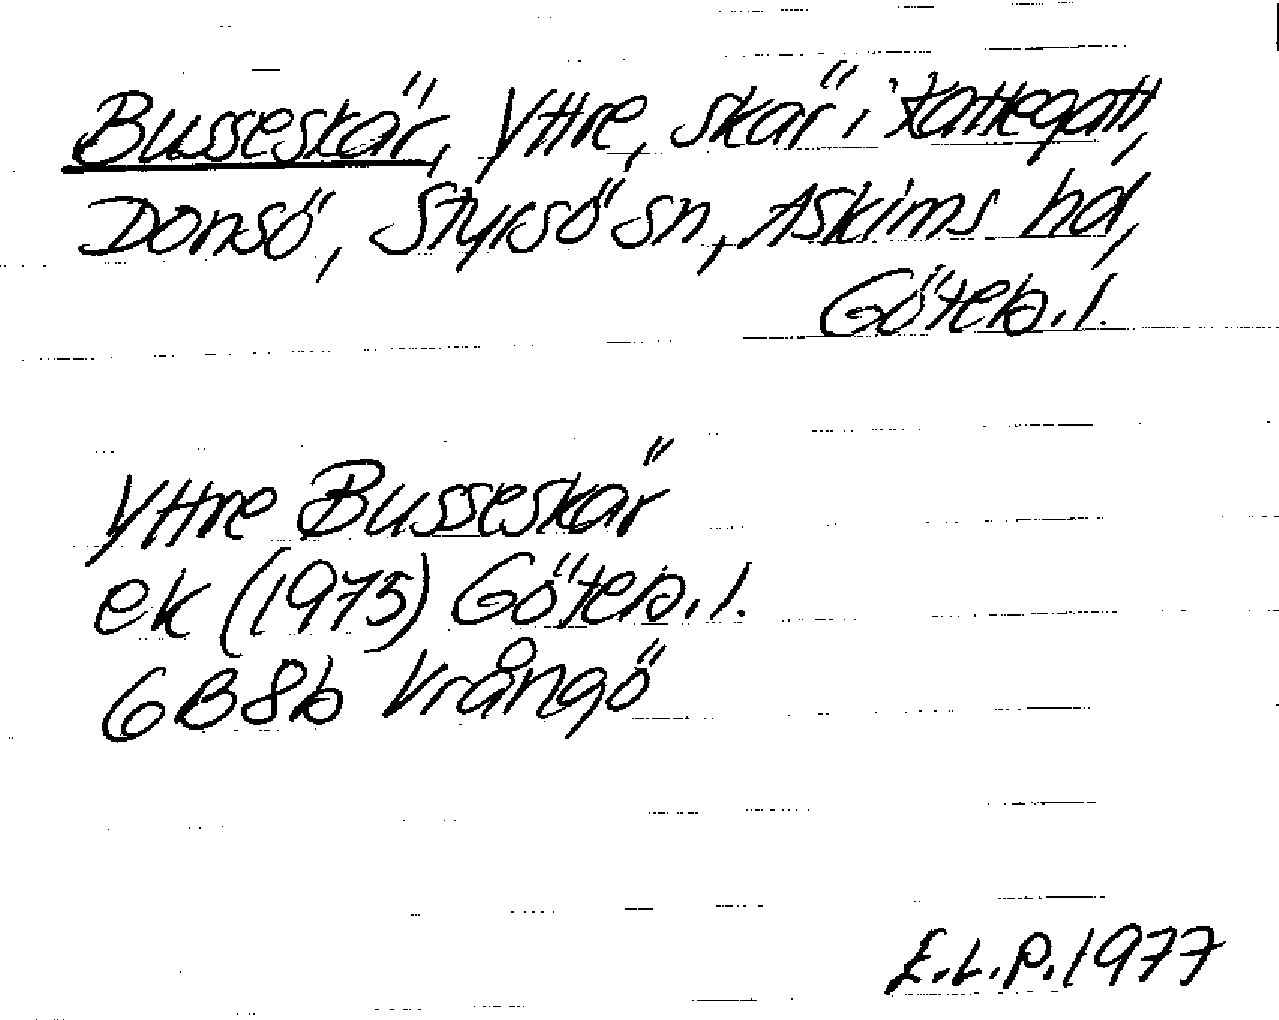 Busseskär, Yttre, skär i Kattegatt,
Donsö, Styrsö sn, Askims hd,
Göteb. l.
Yttre Busseskär
ek (1975) Göteb. l.
6B8b Vrångö
E.L.P. 1977